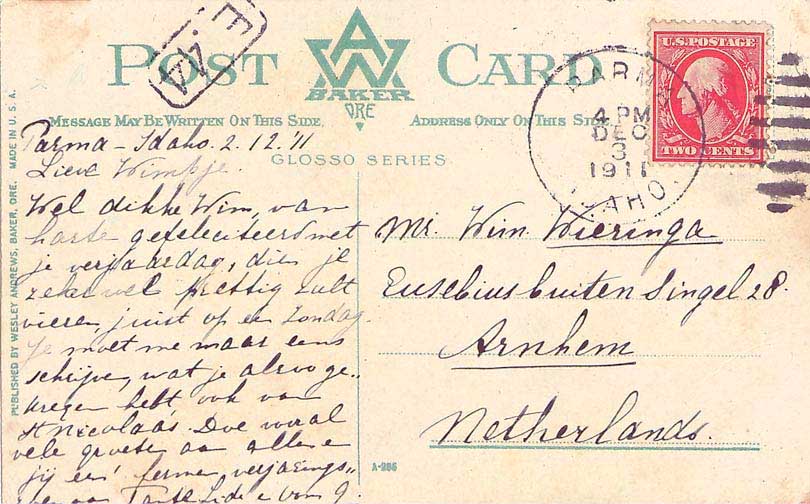 POST CARD
AW
BAKER
ORE
MESSAGE MAY BE WRITTEN ON THIS SIDE.
ADDRESS ONLY ON THIS SIDE.
GLOSSO SERIES
U.S. POSTAGE
TWO CENTS
PARMA
4 PM
DEC
3
1911
IDAHO
Parma - Idaho. 2.12.'11
Lieve Wimpje.
Wel dikke Wim, van
harte gefeliciteerd met
je verjaardag, dien je
zeker wel prettig zult
vieren, juist op een Zondag.
Je moet me maar eens
schrijven, wat je alzoo ge-
kregen hebt ook van
St Nicolaas. Doe vooral
vele groeten aan allen e
jij een ferme verjarings-
zoen van Tante
Mr. Wim Wieringa
Eusebiusbuiten Singel 28.
Arnhem
Netherlands.
A-286
PUBLISHED BY WESLEY ANDREWS, BAKER, ORE. MADE IN U.S.A.